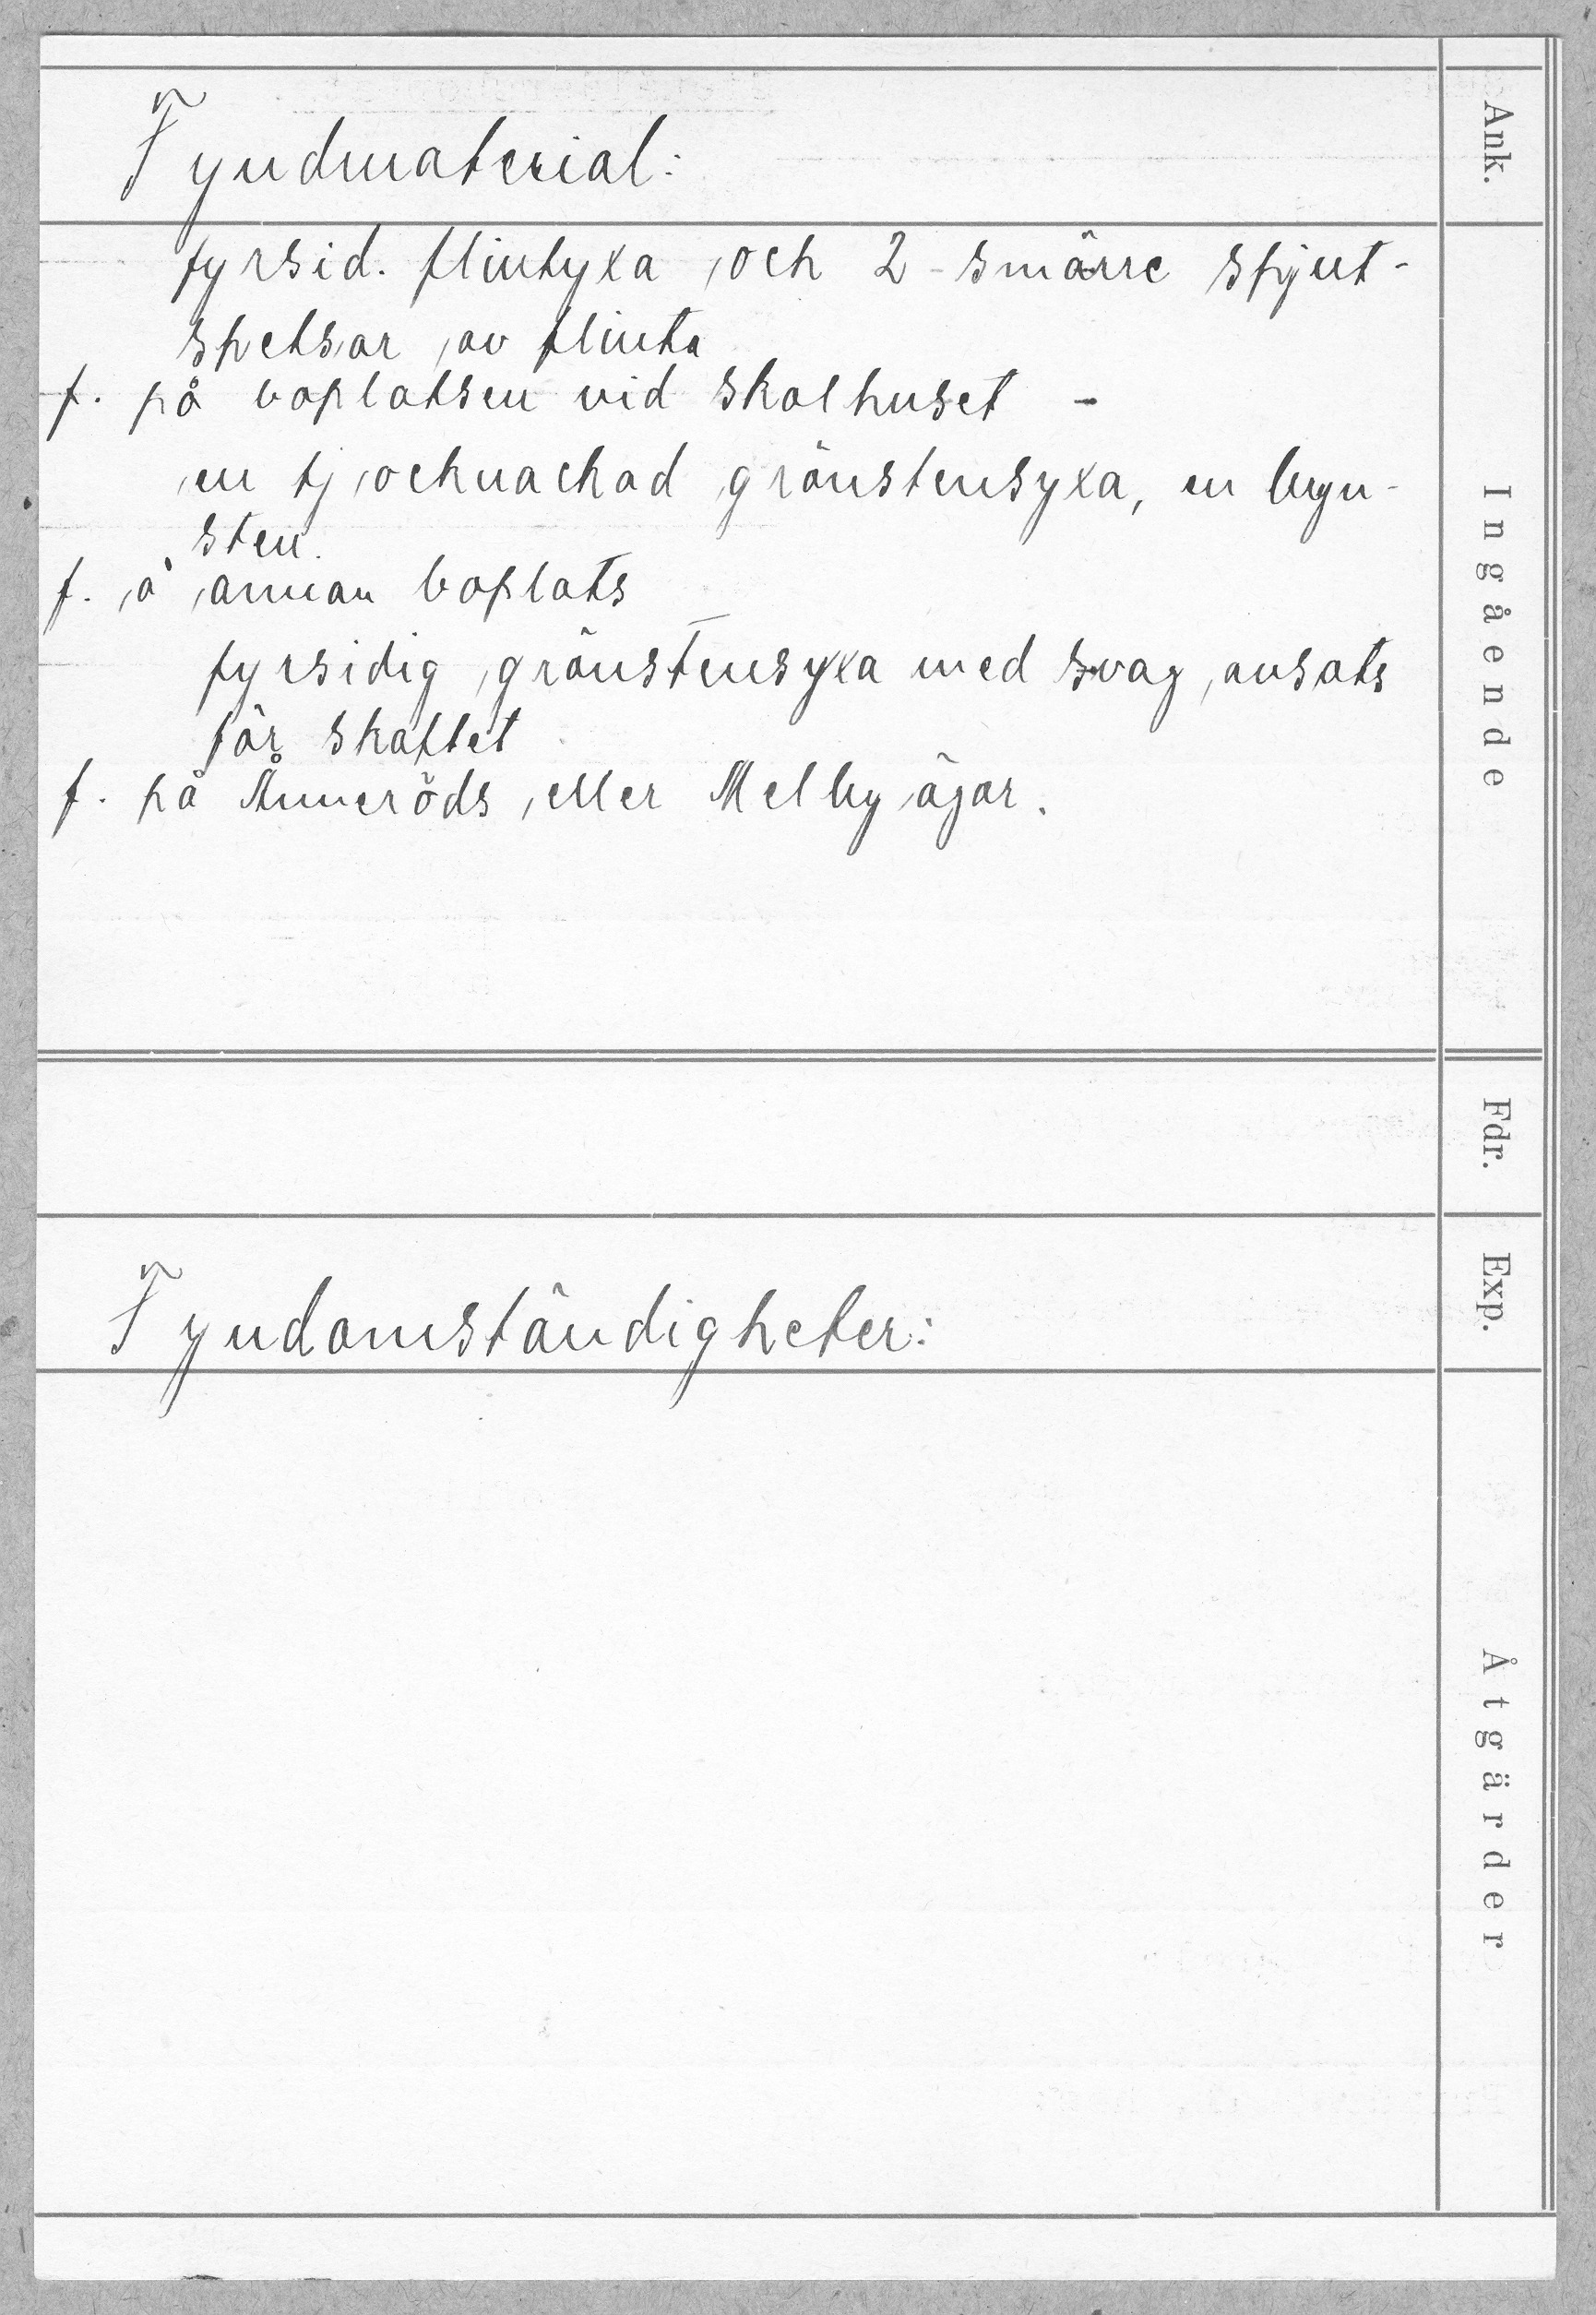 Ank.
Fyndmaterial:
Ingående
fyrsid. flintyxa och 2 smärre spjut-
spetsar av flinta
f. på boplatsen vid skolhuset -
en tjocknackad grönstensyxa, en bryn-
sten.
f. å annan boplats
fyrsidig grönstensyxa med svag ansats
för skaftet
f. på Ånneröds eller Melby ägor.
Fdr.
Exp.
Fyndomständigheter:
Åtgärder